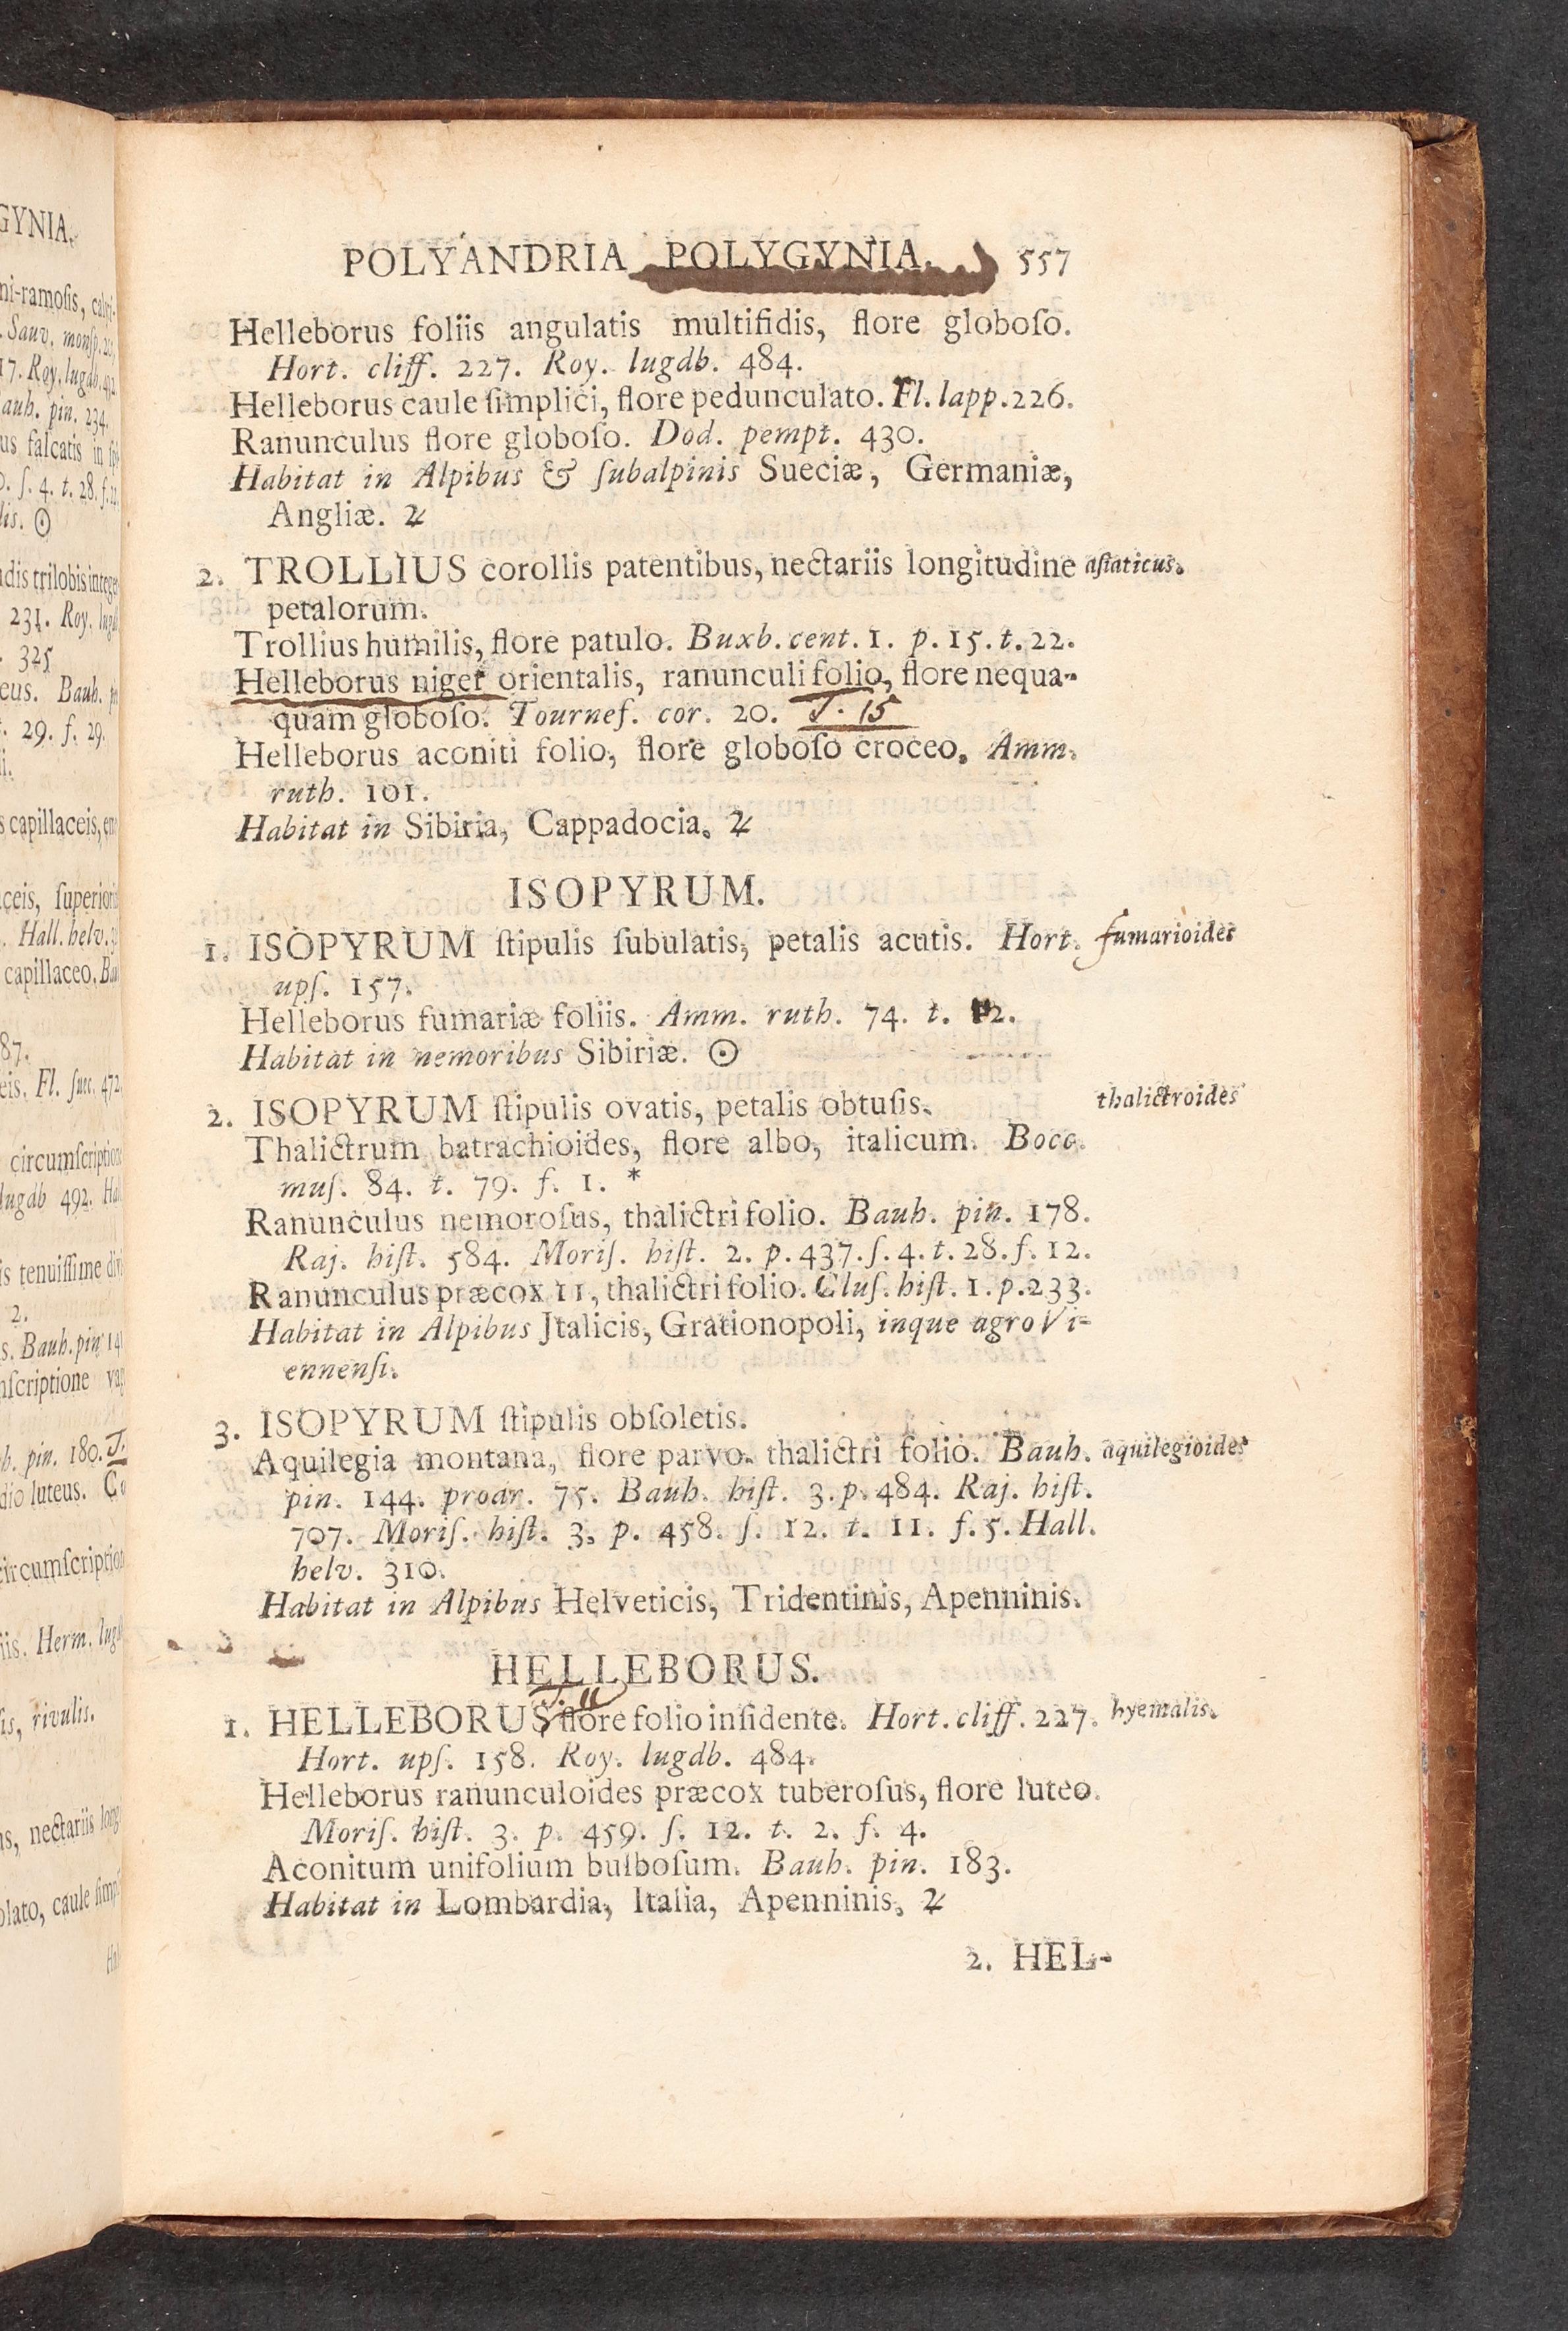 POLYANDRIA POLYGYNIA. 557
Helleborus foliis angulatis multifidis, flore globoſo.
Hort. cliff. 227. Roy. lugdb. 484.
Helleborus caule ſimplici, flore pedunculato. Fl. lapp. 226.
Ranunculus flore globoſo. Dod. pempt. 430.
Habitat in Alpibus & ſubalpinis Sueciæ, Germaniæ,
Angliæ. ♃
2. TROLLIUS corollis patentibus, nectariis longitudine aſiaticus.
petalorum.
Trollius humilis, flore patulo. Buxb. cent. 1. p. 15. t. 22.
Helleborus niger orientalis, ranunculi folio, flore nequa-
quam globoſo. Tournef. cor. 20. T. 15
Helleborus aconiti folio, flore globoſo croceo. Amm.
ruth. 101.
Habitat in Sibiria, Cappadocia. ♃
ISOPYRUM.
1. ISOPYRUM ſtipulis ſubulatis, petalis acutis. Hort. fumarioides
upſ. 157.
Helleborus fumariæ foliis. Amm. ruth. 74. t. 12.
Habitat in nemoribus Sibiriæ. ☉
2. ISOPYRUM ſtipulis ovatis, petalis obtuſis. thalictroides
Thalictrum batrachioides, flore albo, italicum. Bocc.
muſ. 84. t. 79. f. 1. *
Ranunculus nemoroſus, thalictri folio. Bauh. pin. 178.
Raj. hiſt. 584. Moriſ. hiſt. 2. p. 437. ſ. 4. t. 28. f. 12.
Ranunculus præcox 11, thalictri folio. Cluſ. hiſt. 1. p. 233.
Habitat in Alpibus Jtalicis, Grationopoli, inque agro Vi-
ennenſi.
3. ISOPYRUM ſtipulis obſoletis.
Aquilegia montana, flore parvo. thalictri folio. Bauh. aquilegioides
pin. 144. prodr. 75. Bauh. hiſt. 3. p. 484. Raj. hiſt.
707. Moriſ. hiſt. 3. p. 458. ſ. 12. t. 11. f. 5. Hall.
helv. 310.
Habitat in Alpibus Helveticis, Tridentinis, Apenninis.
HELLEBORUS.
1. HELLEBORUS flore folio inſidente. Hort. cliff. 227. hyemalis.
Hort. upſ. 158. Roy. lugdb. 484.
Helleborus ranunculoides præcox tuberoſus, flore luteo.
Moriſ. hiſt. 3. p. 459. ſ. 12. t. 2. f. 4.
Aconitum unifolium bulboſum. Bauh. pin. 183.
Habitat in Lombardia, Italia, Apenninis. ♃
2. HEL-